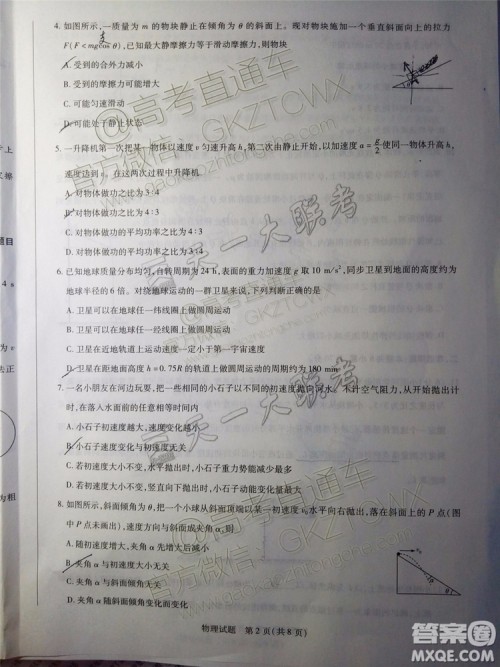 4. 如图所示,一质量为 m 的物块静止在倾角为 θ 的斜面上。现对物块施加一个垂直斜面向上的拉力
F(F<mgcosθ),已知最大静摩擦力等于滑动摩擦力,则物块
A. 受到的合外力减小
B. 受到的摩擦力可能增大
C. 可能匀速滑动
D. 可能处于静止状态
5. 一升降机第一次把某一物体以速度 v 匀速升高 h,第二次由静止开始,以加速度 a=g/2 使同一物体升高 h,
速度达到 v。在这两次过程中升降机
A. 对物体做功之比为 3:4
B. 对物体做功之比为 4:3
C. 对物体做功的平均功率之比为 3:4
D. 对物体做功的平均功率之比为 4:3
6. 已知地球质量分布均匀,自转周期为 24 h,表面的重力加速度 g 取 10 m/s²,同步卫星到地面的高度约为
地球半径的 6 倍。对绕地球运动的一群卫星来说,下列判断正确的是
A. 卫星可以在地球任一纬线圈上做圆周运动
B. 卫星可以在地球任一经线圈上做圆周运动
C. 卫星在近地轨道上运动速度一定小于第一宇宙速度
D. 卫星在距地面高度 h=0.75R 的圆形轨道上做圆周运动的周期约为 180 min
7. 一名小朋友在河边玩耍,把一些相同的小石子以不同的初速度抛向河水。不计空气阻力,从开始抛出计
时,在落入水面前的任意相等时间内
A. 小石子初速度越大,速度变化越小
B. 小石子速度变化与初速度无关
C. 若初速度大小不变,水平抛出时,小石子重力势能减少最多
D. 若初速度大小不变,竖直向下抛时,小石子动能变化量最大
8. 如图所示,斜面倾角为 θ,把一个小球从斜面顶端以某一初速度 v₀ 水平向右抛出,落在斜面上的 P 点(图
中 P 点未画出),速度方向与斜面成夹角 α,则
A. 随初速度增大,夹角 α 先增大后减小
B. 夹角 α 与初速度大小无关
C. 夹角 α 与斜面倾角无关
D. 夹角 α 随斜面倾角变化而变化
物理试题 第 2 页(共 8 页)
@高考直通车
官方微信:GKZTCWX
百天一大联考
@高考直通车
官方微信:GKZTCWX
百天一大联考
答案圈
MXQE.COM